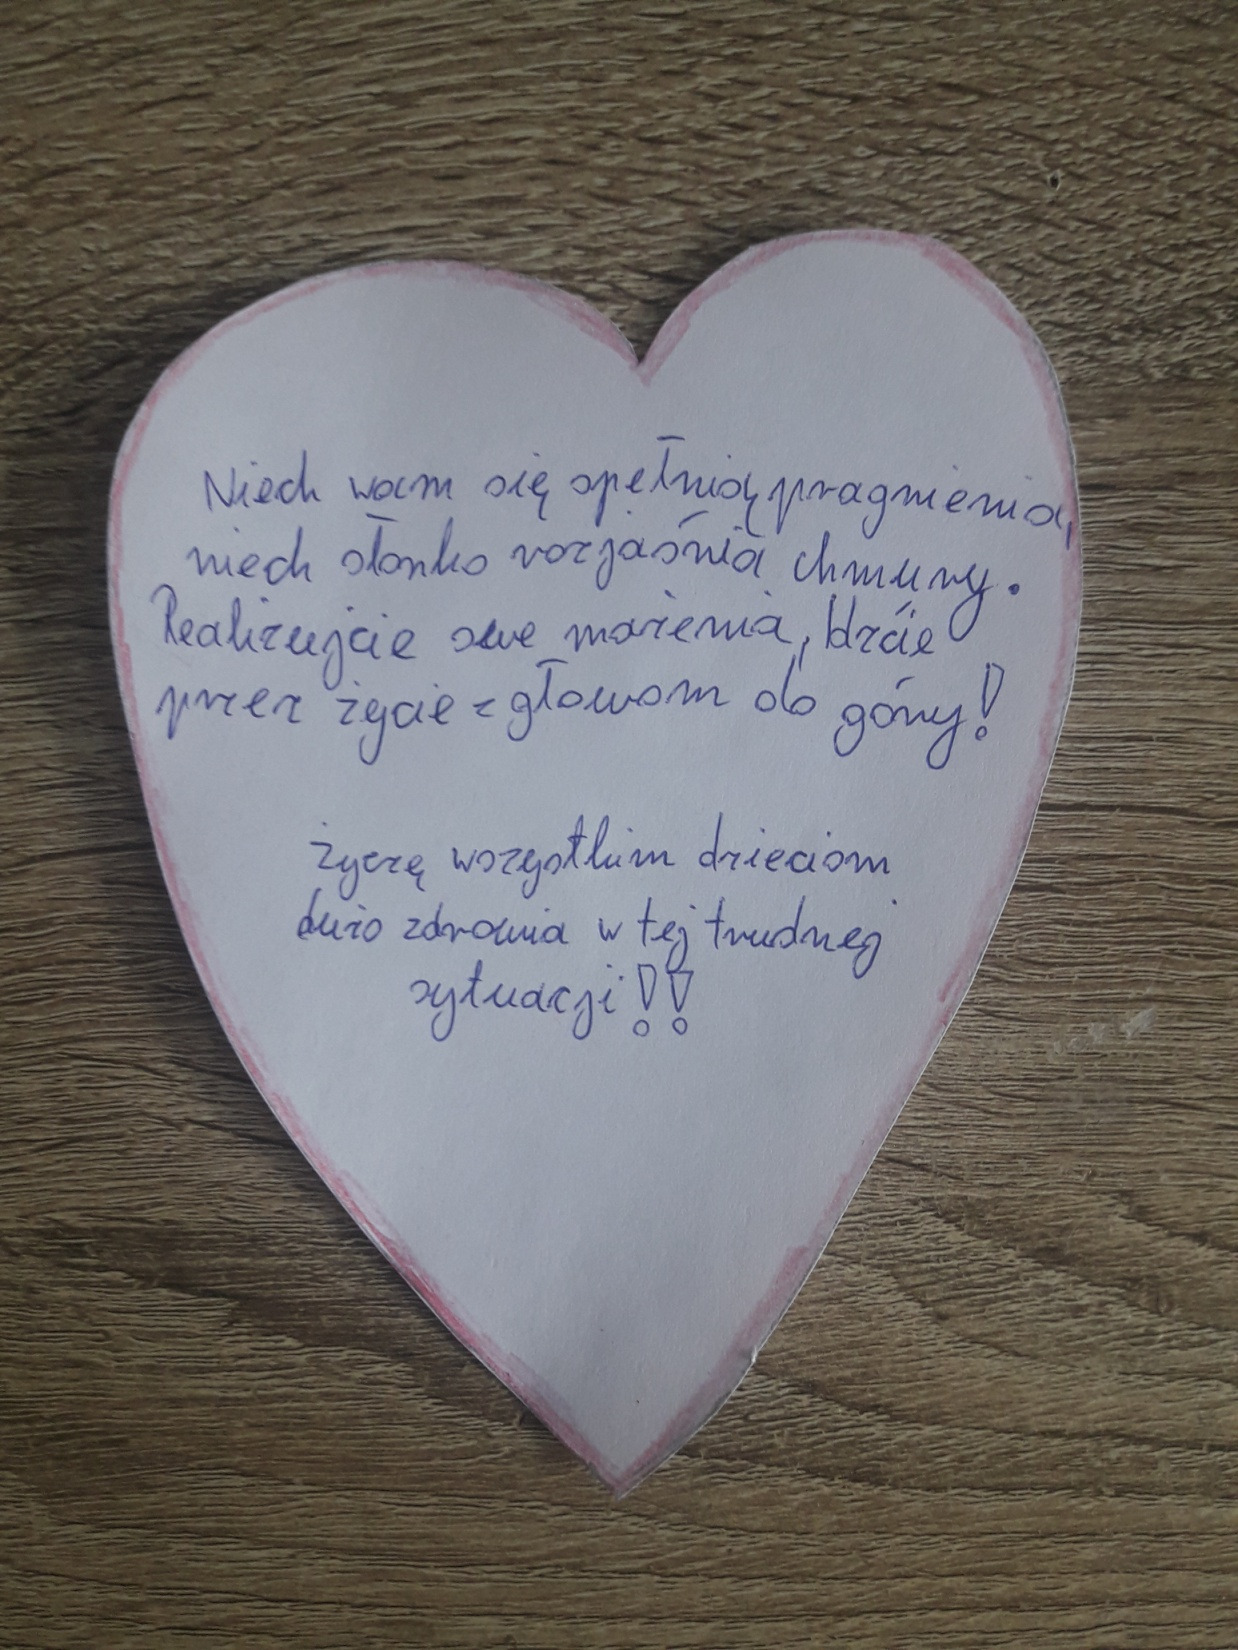 Niech wam się spełnią pragnienia,
niech słonko rozjaśnia chmury.
Realizujcie swe marzenia, Idzcie
przez życie z głowom do góry!
Życzę wszystkim dzieciom
dużo zdrowia w tej trudnej
sytuacji!!